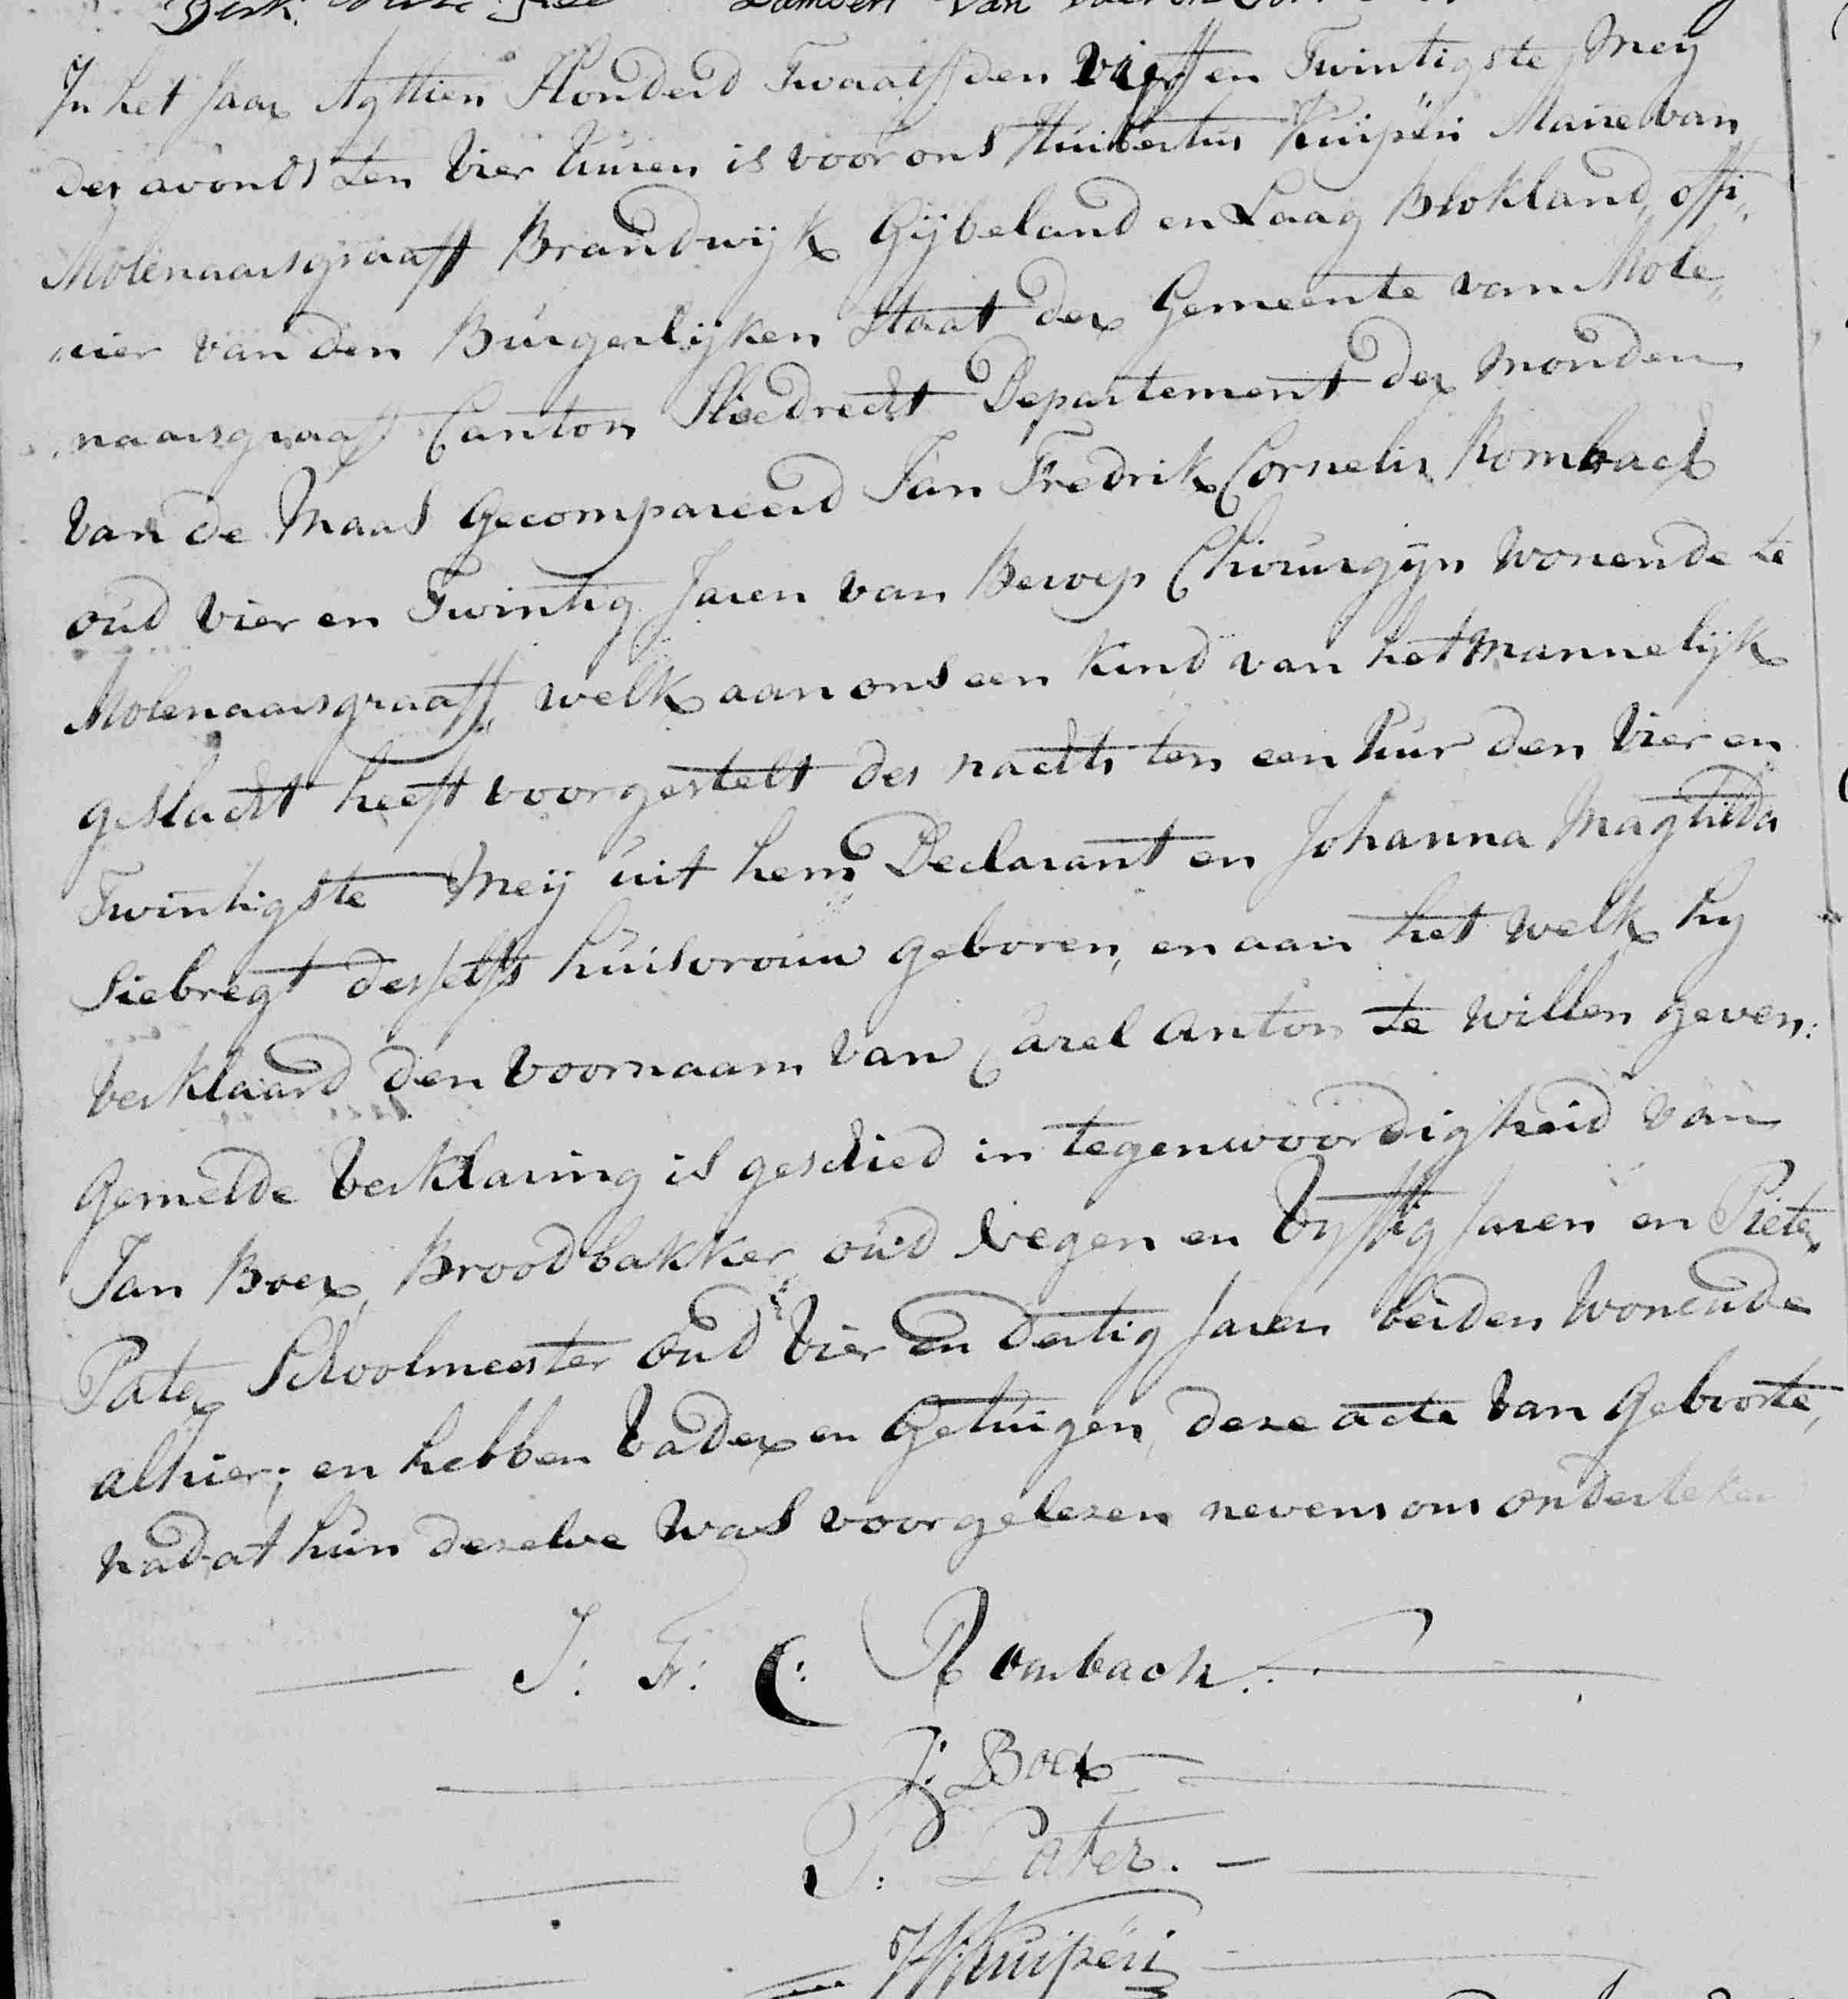 Dirk Lambert van
In het Jaar Agttien Honderd Twaalf den Vijf en Twintigste Mey
des avonds ten Vier Uuren is voor ons Huibertus Kuijpéri Maire van
Molenaarsgraaff Brandwijk Gijbeland en Laag Blokland, offi„
„cier van den Burgerlijken Staat der Gemeente van Mole„
„naarsgraaff Canton Sliedrecht Departement der Monden
van de Maas Gecompareerd Jan Fredrik Cornelis Rombach
oud vier en Twintig Jaren van Beroep Chirurgijn wonende te
Molenaarsgraaff, welk aan ons een Kind van het mannelijk
geslacht heeft voorgestelt des nachts ten een Uur den Vier en
Twintigste Meij uit hem Declarant en Johanna Magtilda
Siebregt deszelfs huisvrouw geboren, en aan het welk hy
verklaard den voornaam van Carel Anton te willen geven:
Gemelde verklaring is geschied in tegenwoordigheid van
Jan Boer, Broodbakker oud Negen en Vyfftig Jaren en Pieter
Pater Schoolmeester oud Vier en Dertig Jaren beiden Wonende
alhier; en hebben Vader en Getuigen, deze acte van Geboorte,
nadat hun dezelve was voorgelezen nevens ons onderteken
J: F: C: Rombach.
J: Boer
P: Pater.
H Kuipéri